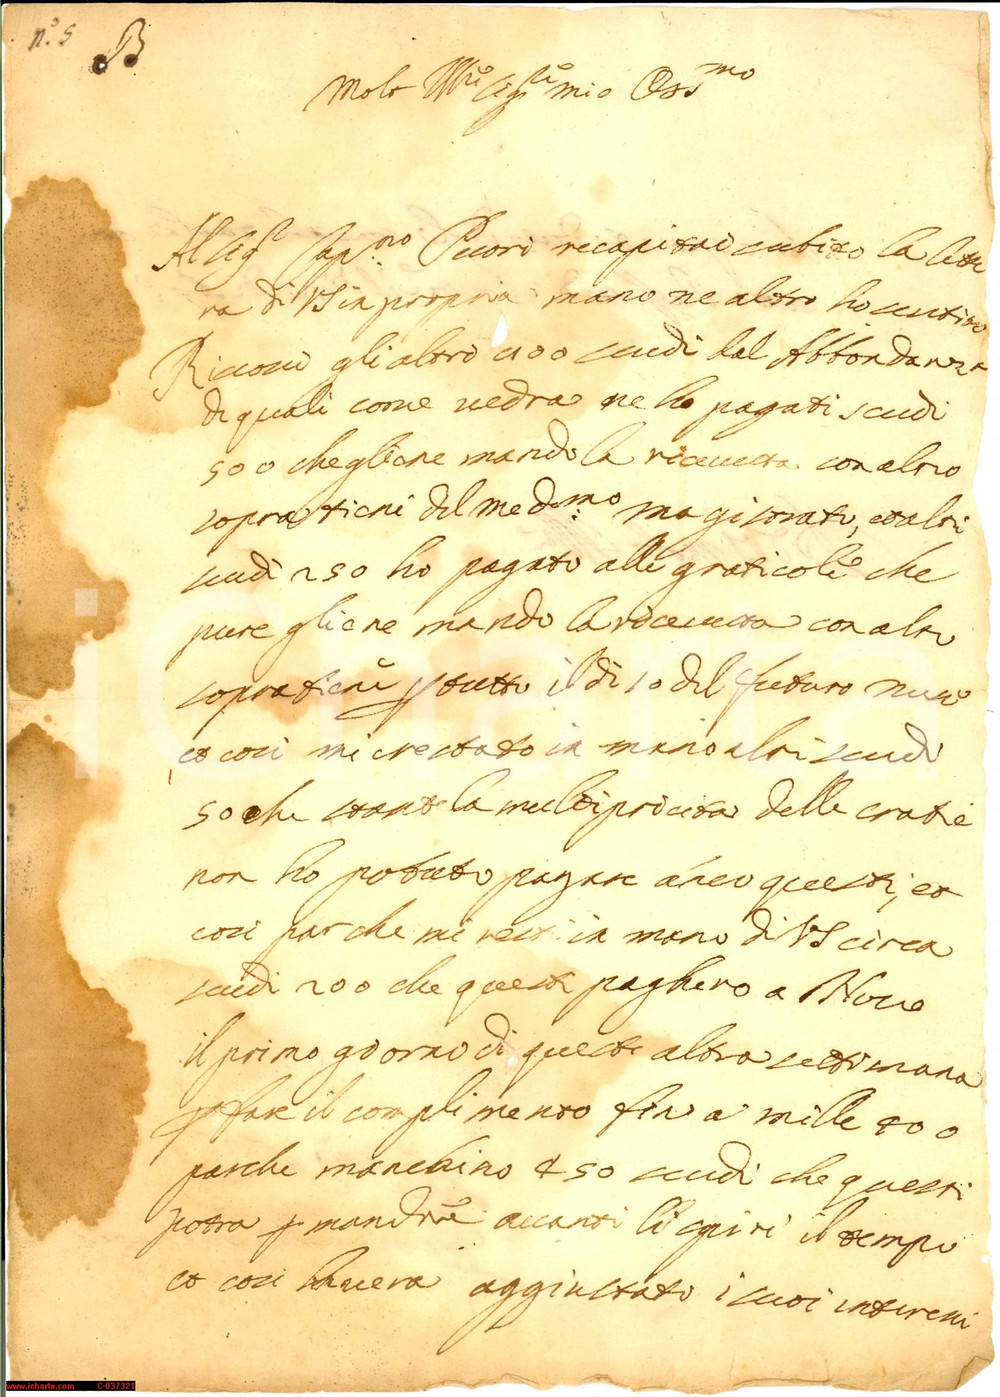 n.º 5 B
Molt Ill.re Sig.re mio Oss.mo
Al Sig.r Cap.no Pucori recapitai subito la lette
ra di VS in propria mano ne altro ho sentito
Riscossi gli altri 800 scudi dal Abbondanza
di quali come vedra ne ho pagati scudi
500 che gliene mando la riceuuta con altro
sopratieni del med.mo magistrato, et altri
scudi 250 ho pagato alle graticole che
pure gliene mando la riceuuta con altro
sopratieni p tutto il di 10 del futuro
et cosi mi e restato in mano altri scudi
50 che stante la multipricita delle cratie
non ho potuto pagare anco questi, et
cosi par che mi resti in mano di VS circa
scudi 200 che questi paghero a Nove
il primo giorno di questa altra settimana
p fare il complimento fin a mille
parche manchino 450 scudi che questi
potra p mandare auanti li spiri il tempo
et cosi hauera aggiustato i suoi interessi
www.icharta.com C-037321
iCharta